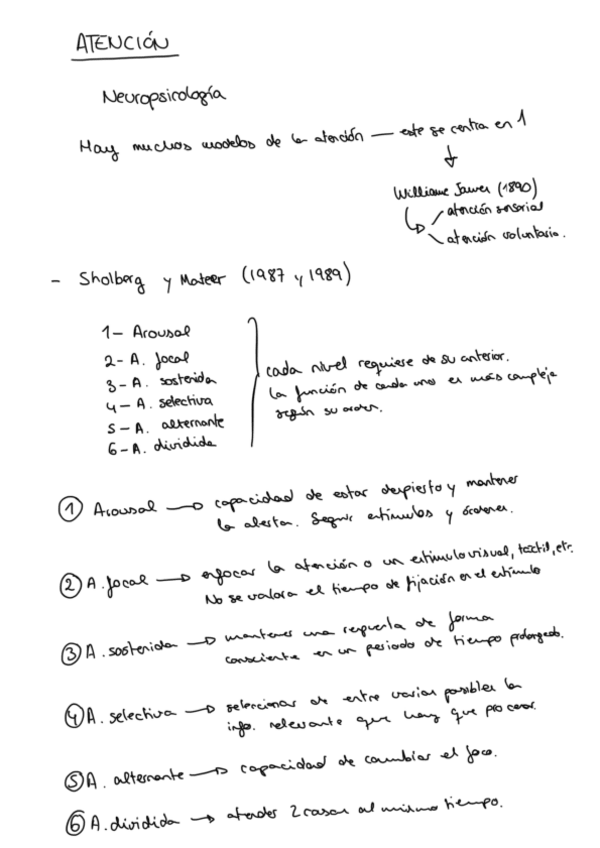 ATENCIÓN
Neuropsicología
Hay muchos modelos de la atención — este se centra en 1
Williame James (1890)
atención sensorial
atención voluntaria.
- Sholberg y Mateer (1987 y 1989)
1- Arousal
2- A. focal
3- A. sostenida
4- A. selectiva
5- A. alternante
6- A. dividida
cada nivel requiere de su anterior.
La función de cada uno es más compleja
según su orden.
① Arousal → capacidad de estar despierto y mantener
la alerta. Seguir estímulos y órdenes.
② A. focal → enfocar la atención a un estímulo visual, táctil, etc.
No se valora el tiempo de fijación en el estímulo
③ A. sostenida → mantener una respuesta de forma
consciente en un periodo de tiempo prolongado.
④ A. selectiva → seleccionar de entre varias posibles la
info. relevante que hay que procesar.
⑤ A. alternante → capacidad de cambiar el foco.
⑥ A. dividida → atender 2 cosas al mismo tiempo.